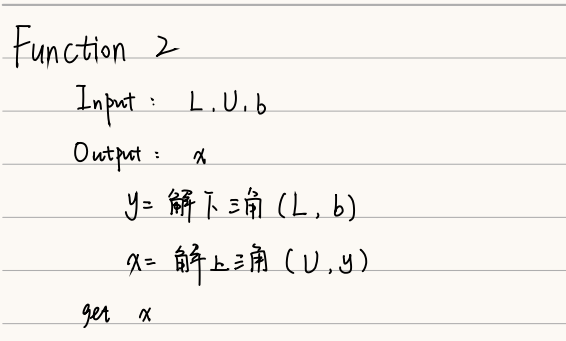 Function 2
Input: L, U, b
Output: x
y= 解下三角 (L, b)
x= 解上三角 (U, y)
get x